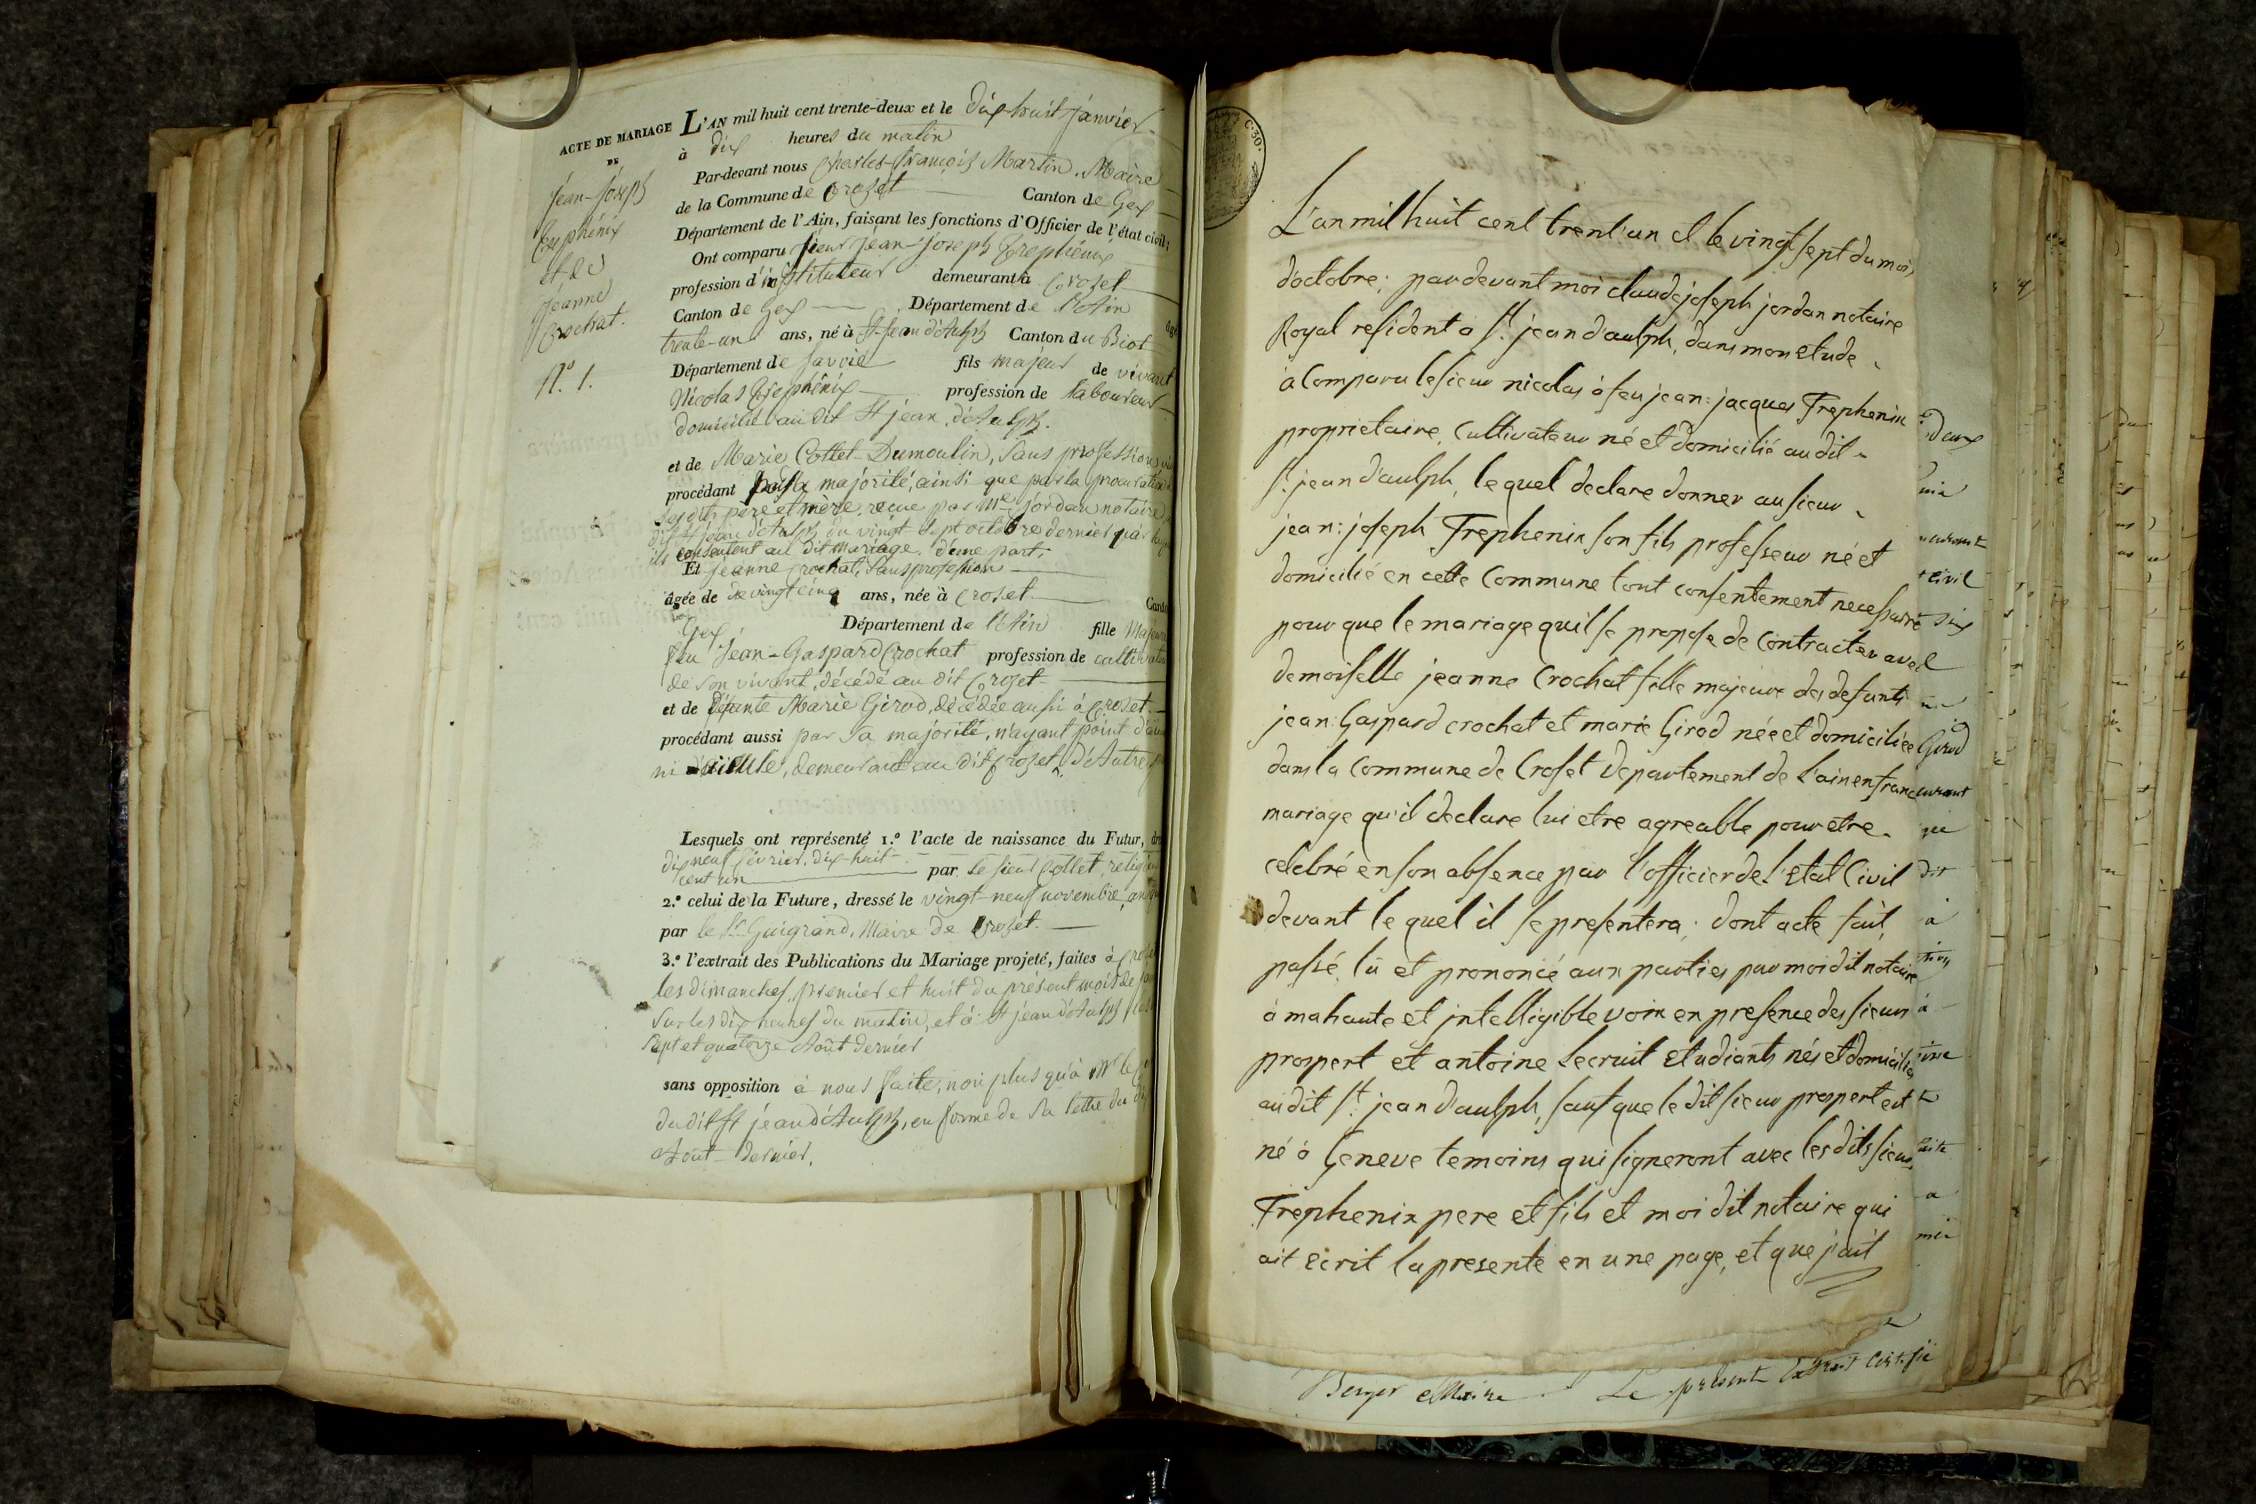 ACTE DE MARIAGE
DE
Jean-Joseph
Trephénix
Et de
Jeanne
Crochat.
N.º 1.
L'AN mil huit cent trente-deux et le dix-huit janvier
à dix heures du matin
Par-devant nous Charles-François Martin, Maire
de la Commune de Crozet Canton de Gex
Département de l'Ain, faisant les fonctions d'Officier de l'état civil;
Ont comparu sieur Jean-Joseph Trephénix
profession d'instituteur demeurant à Crozet
Canton de Gex Département de l'Ain âgé
trente-un ans, né à St Jean d'Aulph Canton du Biot
Département de Savoie fils majeur de vivant
Nicolas Trephénix profession de laboureur
domicilié au dit St jean d'Aulph.
et de Marie Cottet-Dumoulin, sans profession
procédant par sa majorité, ainsi que par la procuration
des dits père et mère, reçue par Me jordan notaire
dit St jean d'Aulph du vingt sept octobre dernier par
ils consentent au dit mariage. d'une part,
Et Jeanne Crochat, sans profession
âgée de vingt cinq ans, née à Crozet Canton
Gex Département de l'Ain fille Majeure
feu Jean-Gaspard Crochat profession de cultivateur
de son vivant, décédé au dit Crozet
et de défunte Marie Girod, décédée aussi à Crozet
procédant aussi par sa majorité, n'ayant point d'aïeul
ni aïeule, demeurant au dit Crozet, d'Autre
Lesquels ont représenté 1.º l'acte de naissance du Futur,
dix neuf février, dix-huit
cent un par le sieur Cottet, religieux
2.º celui de la Future, dressé le vingt-neuf novembre, an
par le Sr Guigrand, Maire de Crozet.
3.º l'extrait des Publications du Mariage projeté, faites à
les dimanches, premier et huit du présent mois de
sur les dix heures du matin, et à St jean d'Aulph
sept et quatorze Août dernier
sans opposition à nous faite, non plus qu'à Mr le
du dit St jean d'Aulph, en forme de sa lettre du
Août dernier.
L'an mil huit cent trent'un et le vingt sept du mois
d'octobre; par devant moi claude joseph jordan notaire
Royal resident a St. jean d'aulph, dans mon etude
à Comparu le sieur nicolas à feu jean: jacques Trephenix
proprietaire, Cultivateur né et domicilié au dit
St. jean d'aulph, le quel declare donner au sieur
jean: joseph Trephenix son fils professeur né et
domicilié en cette Commune tout consentement necessaire
pour que le mariage quil se propose de Contracter avec
demoiselle jeanne Crochat fille majeure des defunts
jean: Gaspard crochat et marie Girod née et domiciliée
dans la Commune de Croset Departement de L'ain en france
mariage qu'il declare lui etre agreable pour etre
celebré en son absence par l'officier de l'Etat Civil
devant le quel il se presentera; dont acte fait,
passé, lu et prononcé aux parties par moi dit notaire
à ma haute et jntelligible voix en presence des sieurs
prospert et antoine Lecruit etudiants nés et domiciliés
au dit St. jean d'aulph, sauf que le dit sieur prospert est
né à Geneve temoins qui signeront avec les dits sieurs
Trephenix pere et fils et moi dit notaire qui
ait ecrit la presente en une page, et que j'ait
Girod
civil
six
dit
à
Berger Maire. Le présent Extrait Certifié